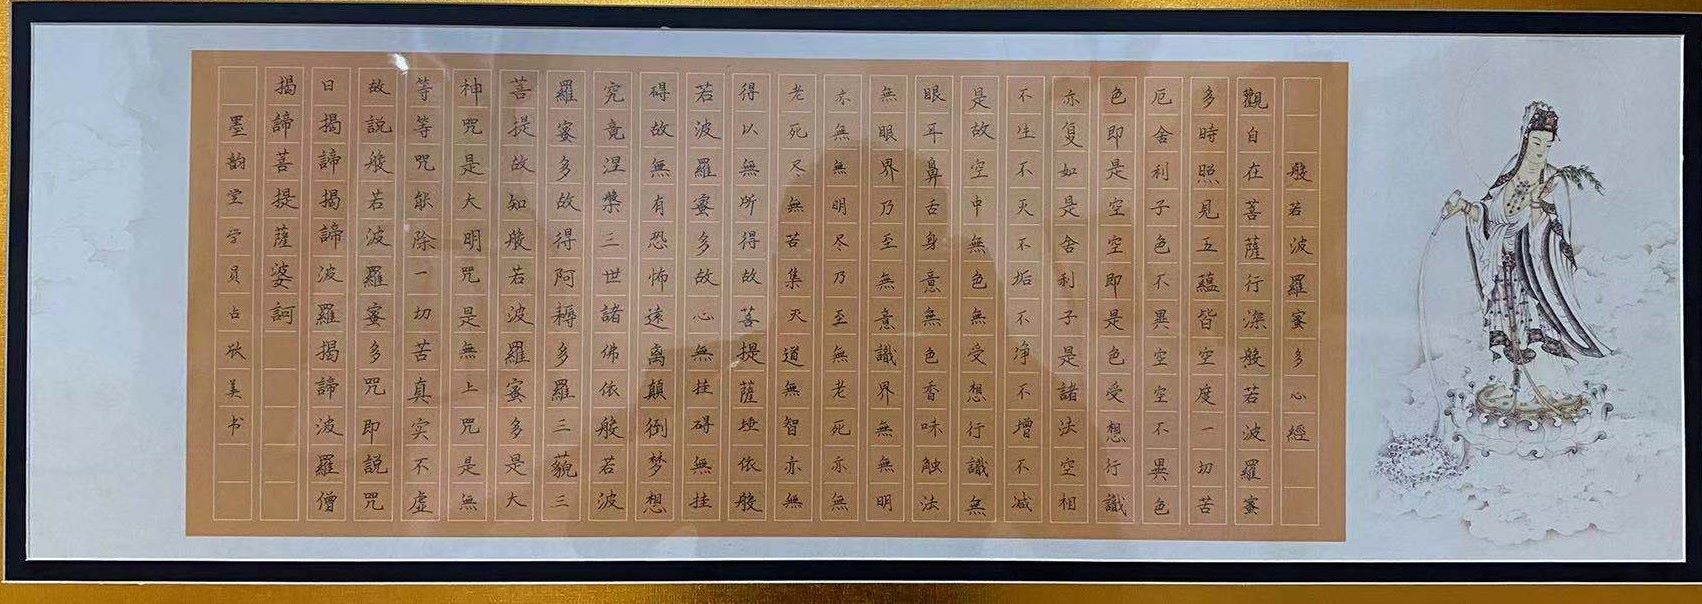 般若波羅蜜多心經
觀自在菩薩行深般若波羅蜜
多時照見五蘊皆空度一切苦
厄舍利子色不異空空不異色
色即是空空即是色受想行識
亦复如是舍利子是諸法空相
不生不灭不垢不净不增不减
是故空中無色無受想行識無
眼耳鼻舌身意無色香味触法
無眼界乃至無意識界無無明
亦無無明尽乃至無老死亦無
老死尽無苦集灭道無智亦無
得以無所得故菩提薩埵依般
若波羅蜜多故心無挂碍無挂
碍故無有恐怖遠离顛倒梦想
究竟涅槃三世諸佛依般若波
羅蜜多故得阿耨多羅三藐三
菩提故知般若波羅蜜多是大
神咒是大明咒是無上咒是無
等等咒能除一切苦真实不虚
故説般若波羅蜜多咒即説咒
曰揭諦揭諦波羅揭諦波羅僧
揭諦菩提薩婆訶
墨韵堂学員占欣美书